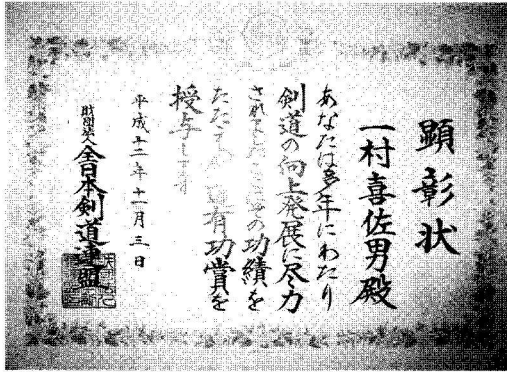 顕彰状
一村喜佐男殿
あなたは多年にわたり
剣道の向上発展に尽力
されました その功績を
たたえ 道有功賞を
授与します
平成十二年十一月三日
財団法人全日本剣道連盟